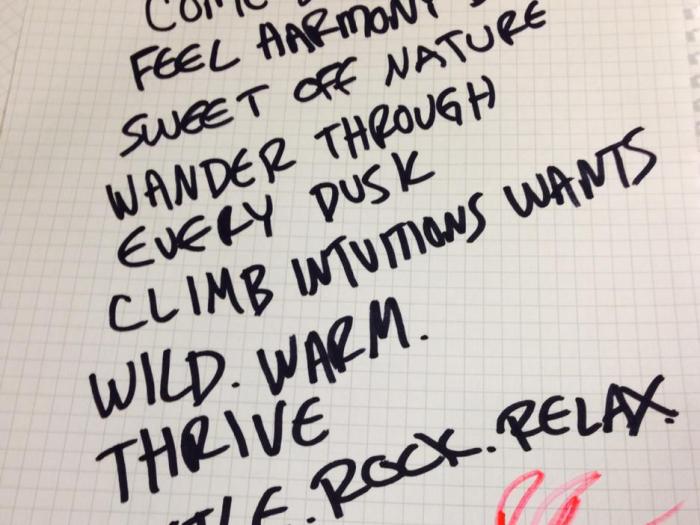 COME
FEEL HARMONY
SWEET OFF NATURE
WANDER THROUGH
EVERY DUSK
CLIMB INTUITIONS WANTS
WILD. WARM.
THRIVE
. ROCK. RELAX.